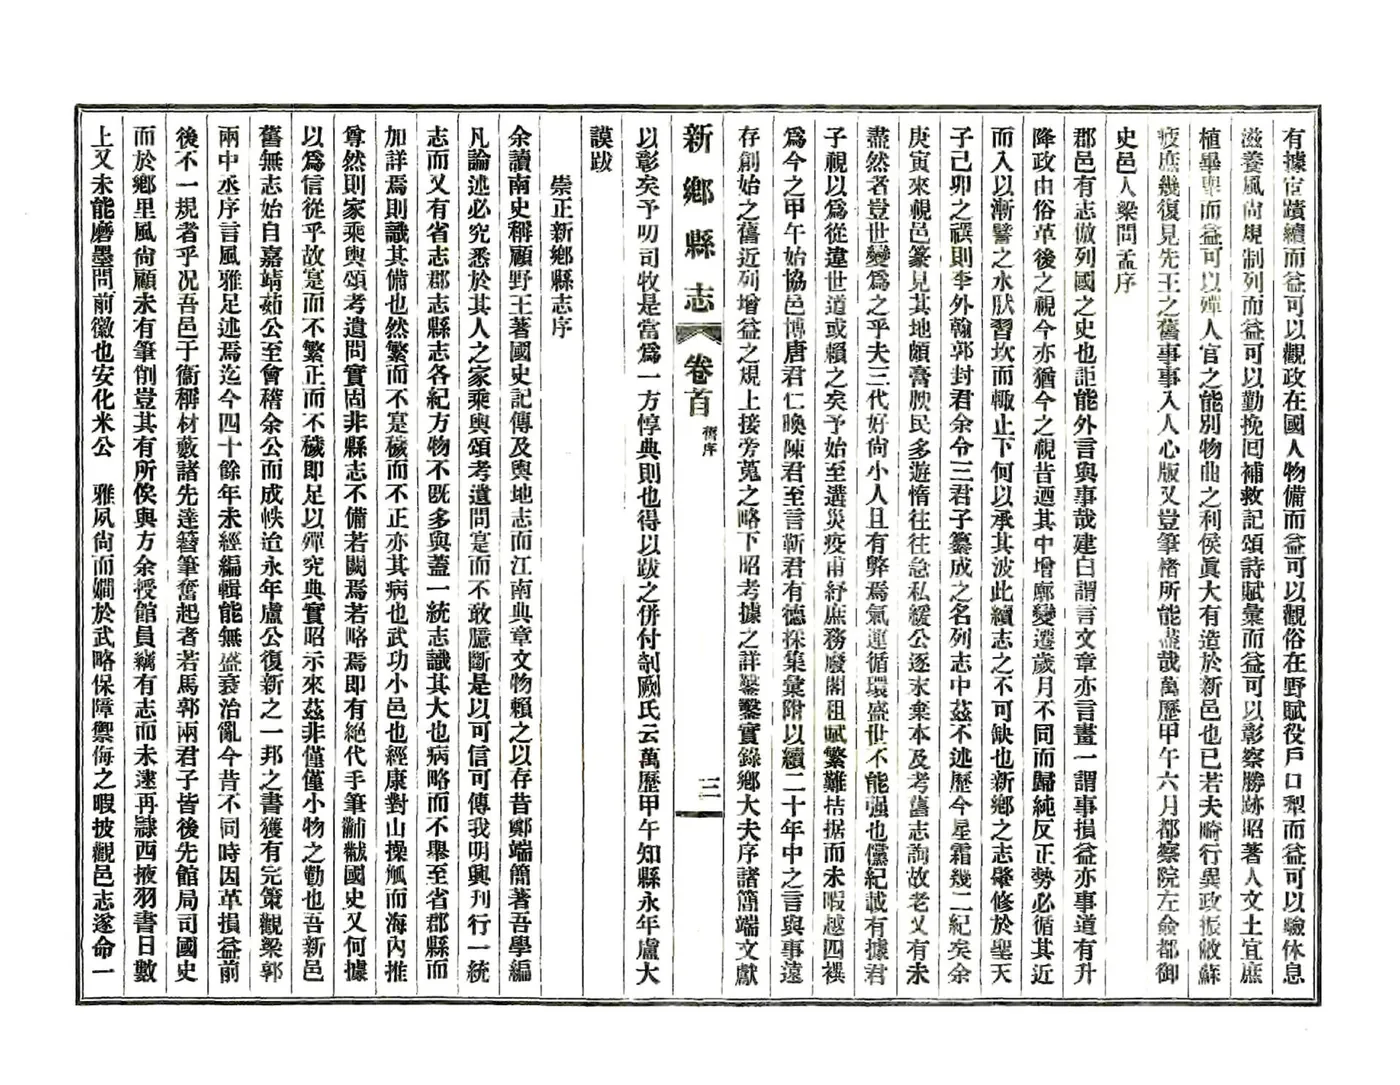 有據宦蹟續而益可以觀政在國人物備而益可以觀俗在野賦役戶口犁而益可以驗休息
滋養風尙規制列而益可以勤挽囘補救記頌詩賦彙而益可以彰察勝跡昭著人文土宜庶
植畢舉而益可以殫人官之能別物曲之利侯眞大有造於新邑也已若夫畸行異政振敝蘇
疲庶幾復見先王之舊事事入人心版又豈筆楮所能盡哉萬歷甲午六月都察院左僉都御
史邑人梁問孟序
郡邑有志倣列國之史也詎能外言與事哉建白謂言文章亦言畫一謂事損益亦事道有升
降政由俗革後之視今亦猶今之視昔迺其中增廓變遷歲月不同而歸純反正勢必循其近
而入以漸譬之水肰習坎而輙止下何以承其波此續志之不可缺也新鄉之志肇修於聖天
子己卯之禩則李外翰郭封君余令三君子纂成之名列志中茲不述歷今星霜幾二紀矣余
庚寅來覩邑篆見其地頗膏腴民多遊惰往往急私緩公逐末棄本及考舊志詢故老又有未
盡然者豈世變爲之乎夫三代好尙小人且有弊焉氣運循環盛世不能强也儻紀載有據君
子視以爲從違世道或賴之矣予始至遘災疫甫紓庶務廢閣租賦繁難拮据而未暇越四禩
爲今之甲午始協邑博唐君仁喚陳君至言靳君有德採集彙附以續二十年中之言與事遠
存創始之舊近列增益之規上接旁蒐之略下昭考據之詳鑿鑿實錄鄉大夫序諸簡端文獻
新鄉縣志 卷首 舊序 三
以彰矣予叨司牧是當爲一方惇典則也得以跋之併付制劂氏云萬歷甲午知縣永年盧大
謨跋
崇正新鄉縣志序
余讀南史稱顧野王著國史記傳及輿地志而江南典章文物賴之以存昔鄭端簡著吾學編
凡論述必究悉於其人之家乘輿頌考遺問寔而不敢臆斷是以可信可傳我明興刊行一統
志而又有省志郡志縣志各紀方物不既多與蓋一統志識其大也病略而不舉至省郡縣而
加詳焉則識其備也然繁而不寔穢而不正亦其病也武功小邑也經康對山操觚而海內推
尊然則家乘輿頌考遺問實固非縣志不備若闕焉若略焉即有絕代手筆黼黻國史又何據
以爲信從乎故寔而不繁正而不穢即足以殫究典實昭示來茲非僅僅小物之勤也吾新邑
舊無志始自嘉靖茹公至會稽余公而成帙迨永年盧公復新之一邦之書獲有完策觀梁郭
兩中丞序言風雅足述焉迄今四十餘年未經編輯能無盛衰治亂今昔不同時因革損益前
後不一規者乎况吾邑于衞稱材藪諸先達簪筆奮起者若馬郭兩君子皆後先館局司國史
而於鄉里風尙顧未有筆削豈其有所俟與方余授館員竊有志而未逮再隸西掖羽書日數
上又未能磨墨問前徽也安化米公 雅夙尙而嫺於武略保障禦侮之暇披觀邑志遂命一